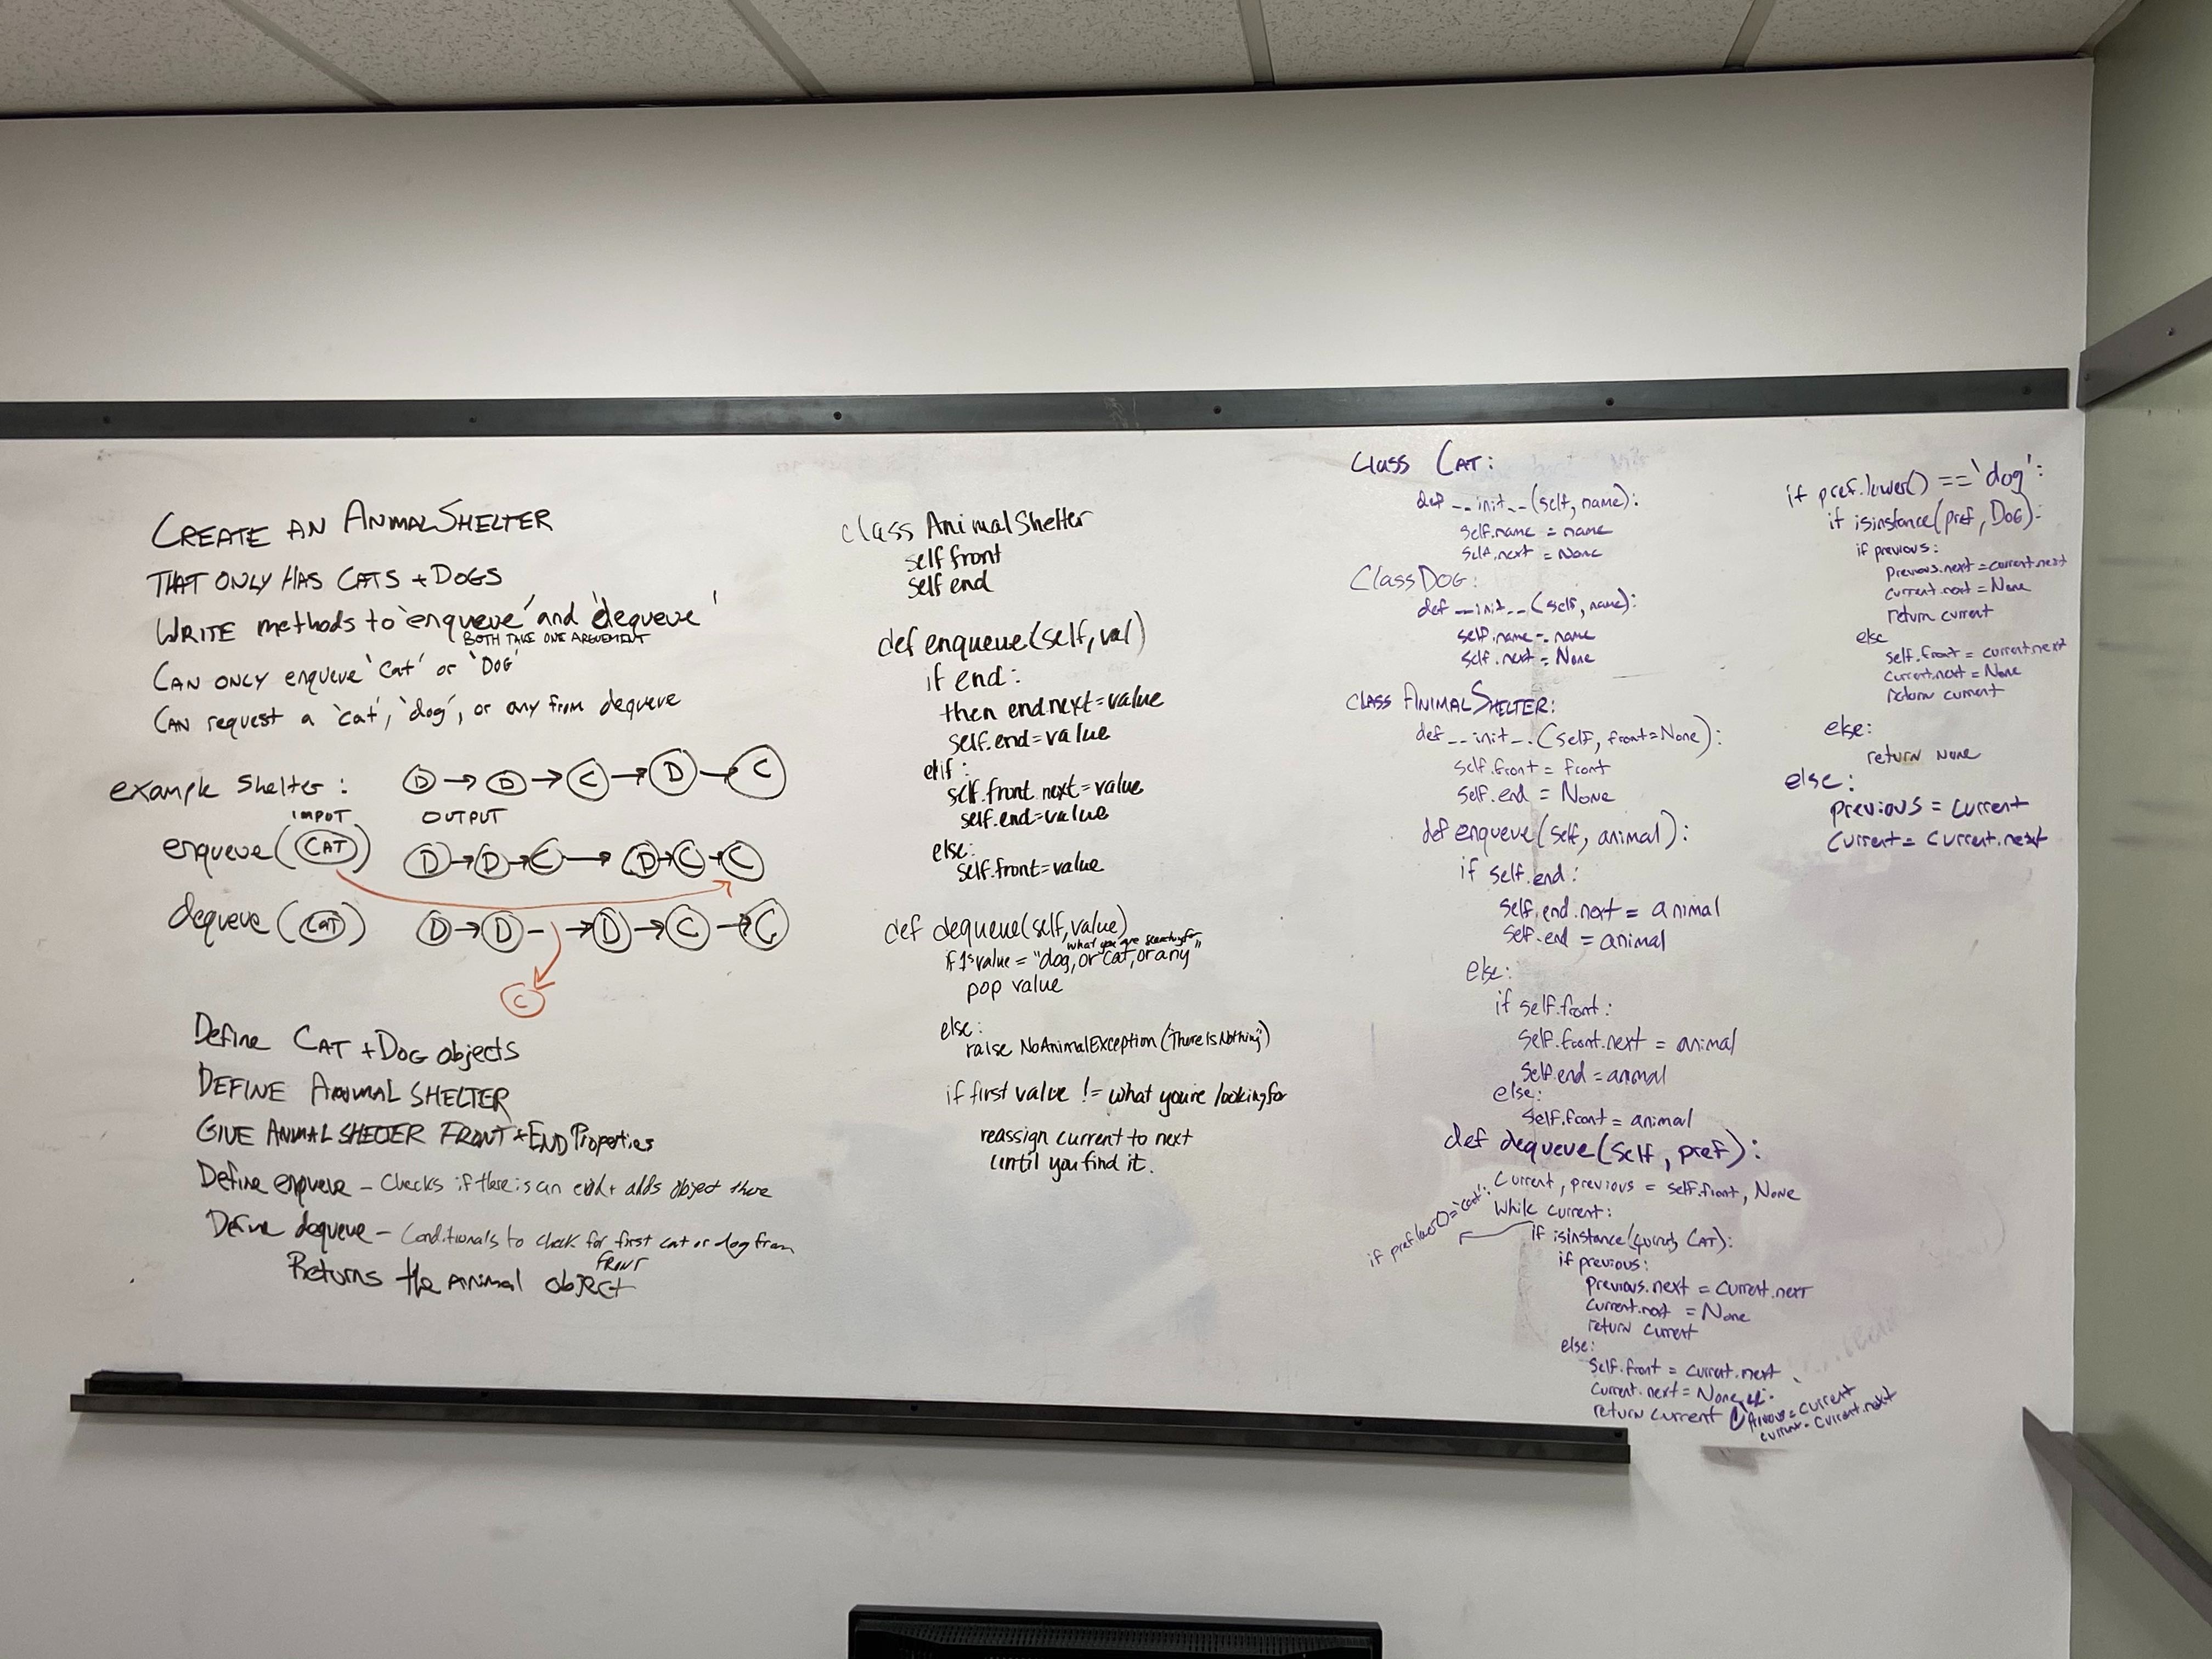 CREATE AN ANIMALSHELTER
THAT ONLY HAS CATS + DOGS
WRITE methods to 'enqueue' and 'dequeue'
BOTH TAKE ONE ARGUEMENT
CAN ONLY enqueue 'cat' or 'DOG'
CAN request a 'cat', 'dog', or any from dequeue
example shelter :
D → D → C → D → C
INPUT
OUTPUT
enqueue(CAT)
D → D → C → D → C → C
dequeue(CAT)
D → D - → D → C → C
C
Define CAT + DOG objects
DEFINE ANIMAL SHELTER
GIVE ANIMAL SHELTER FRONT + END Properties
Define enqueue - Checks if there is an end + adds object there
Define dequeue - Conditionals to check for first cat or dog from
FRONT
Returns the animal object
class AnimalShelter
self front
self end
def enqueue(self, val)
if end:
then end.next = value
self.end = value
elif:
self.front.next = value
self.end = value
else:
self.front = value
def dequeue(self, value)
what you are searching for
if 1st value = "dog, or cat, or any"
pop value
else:
raise NoAnimalException("There Is Nothing")
if first value != what you're looking for
reassign current to next
until you find it.
Class CAT:
def __init__(self, name):
self.name = name
self.next = None
Class DOG:
def __init__(self, name):
self.name = name
self.next = None
CLASS ANIMALSHELTER:
def __init__(self, front=None):
self.front = front
self.end = None
def enqueue(self, animal):
if self.end:
self.end.next = animal
self.end = animal
else:
if self.front:
self.front.next = animal
self.end = animal
else:
self.front = animal
def dequeue(self, pref):
Current, previous = self.front, None
While current:
if pref.lower() = 'cat':
if isinstance(current, CAT):
if previous:
previous.next = current.next
current.next = None
return current
else:
self.front = current.next
current.next = None
return current
Previous = current
current = current.next
if pref.lower() == 'dog':
if isinstance(pref, DOG):
if previous:
previous.next = current.next
current.next = None
return current
else
self.front = current.next
current.next = None
return current
else:
return None
else:
previous = current
current = current.next